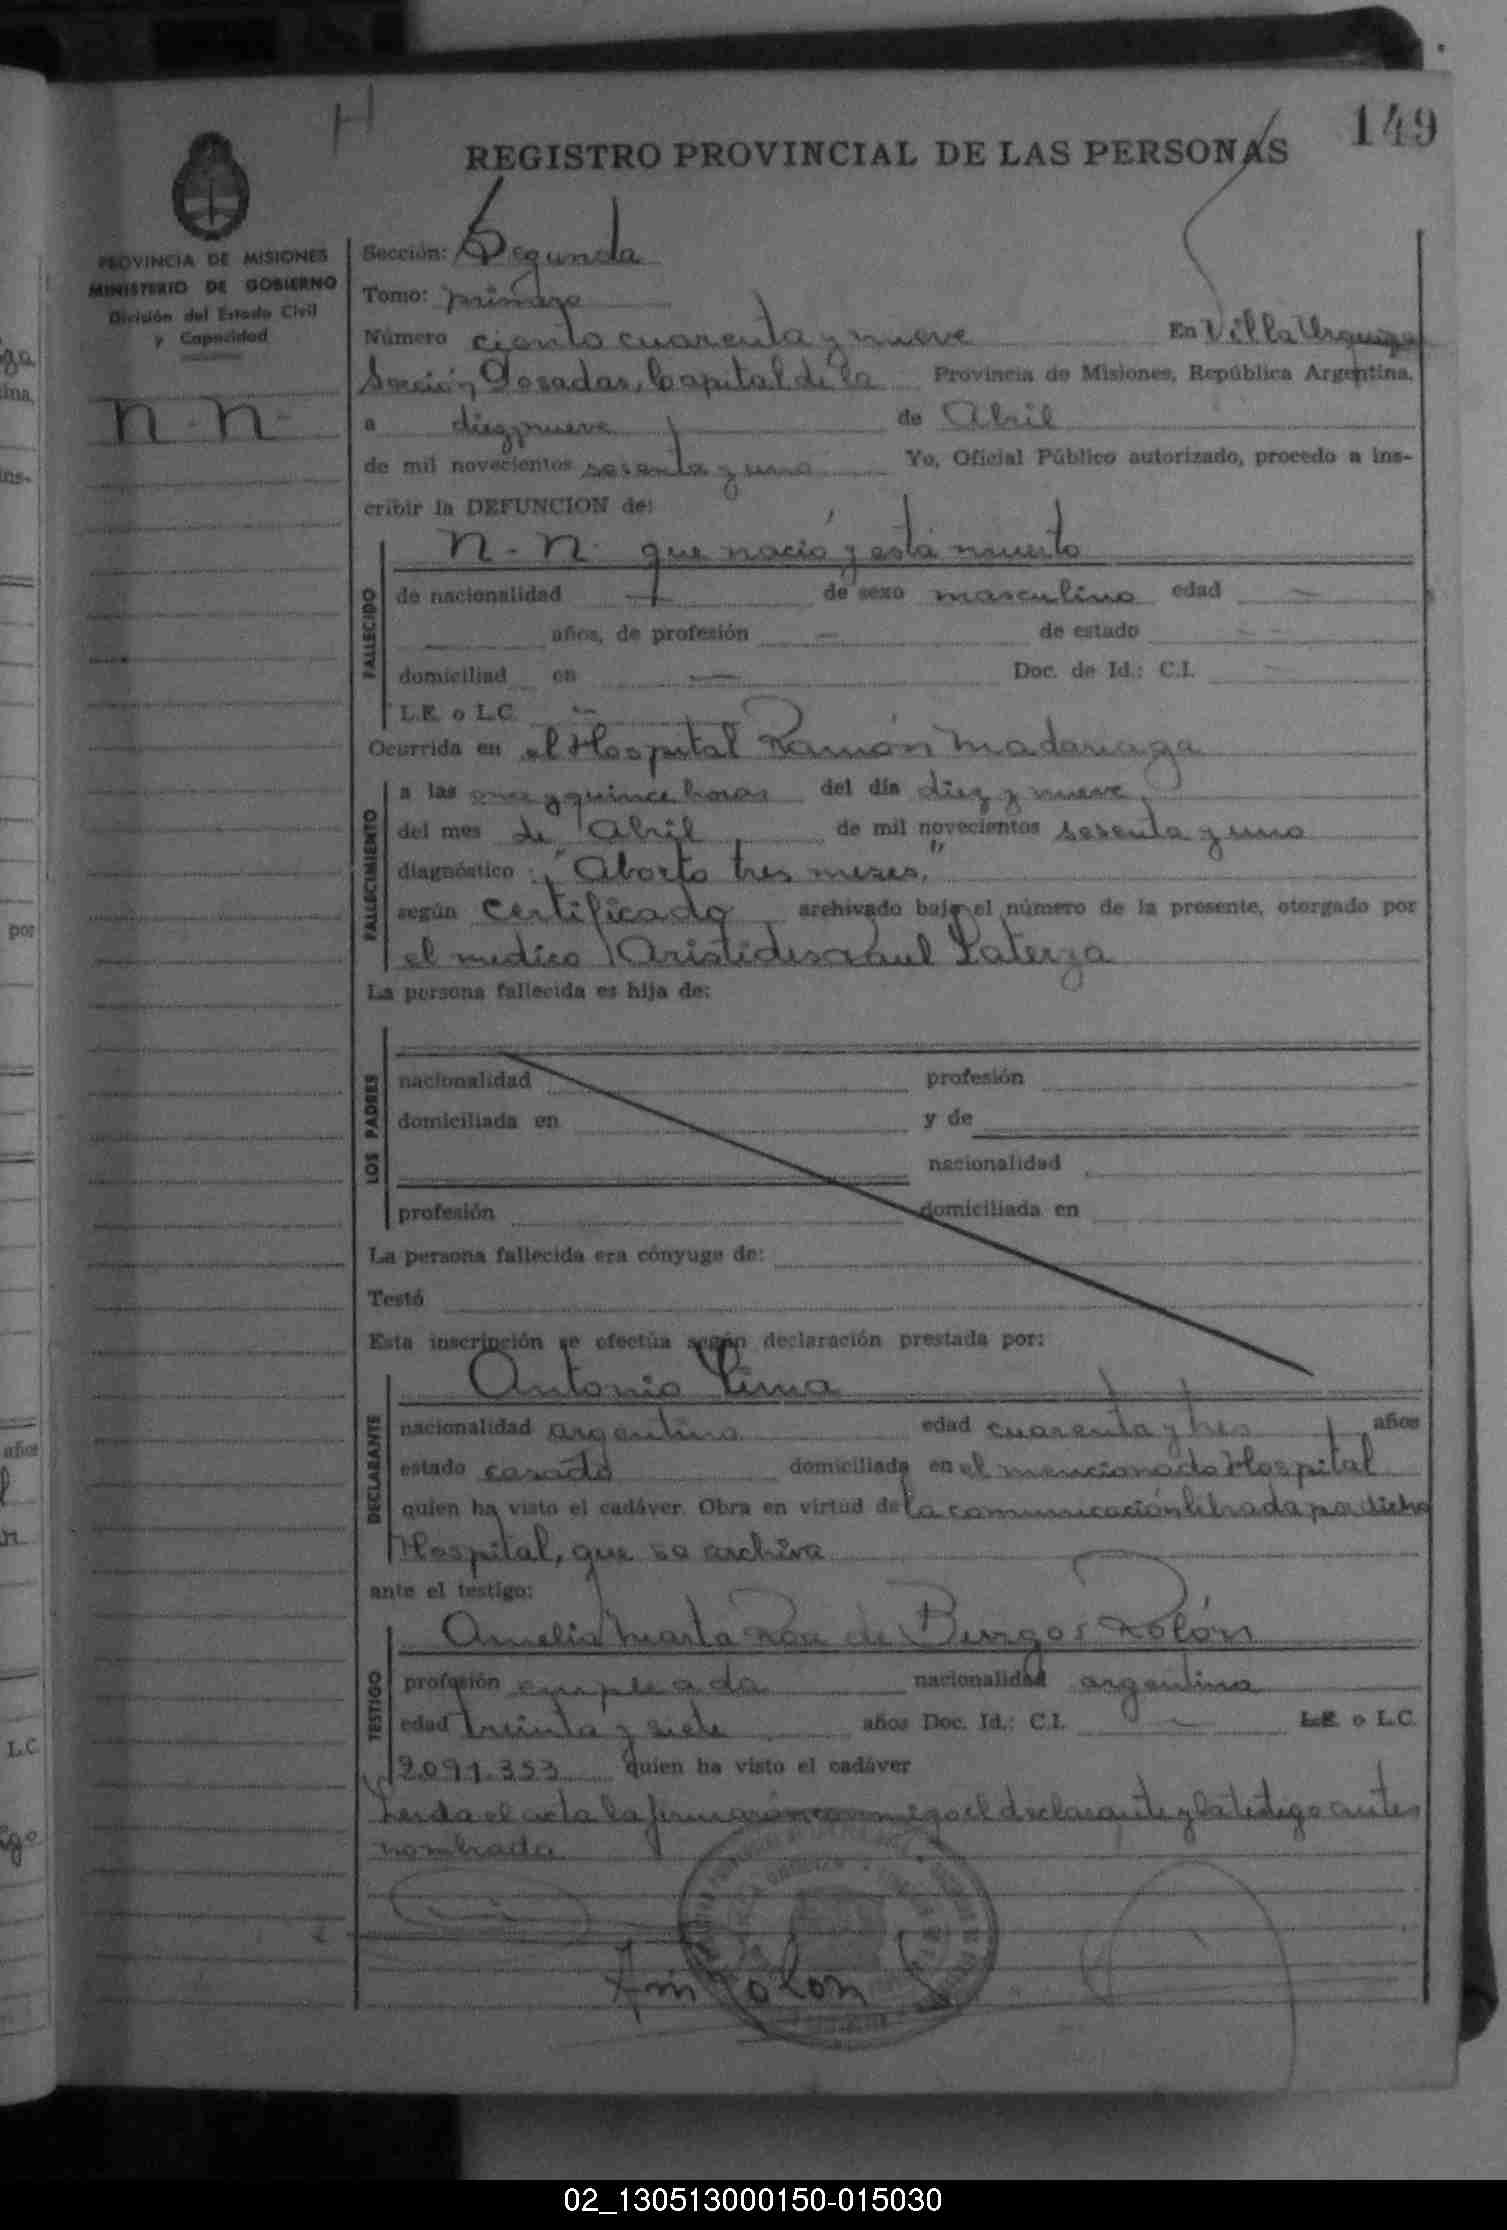 H
149
REGISTRO PROVINCIAL DE LAS PERSONAS
PROVINCIA DE MISIONES
MINISTERIO DE GOBIERNO
División del Estado Civil
y Capacidad
N. N.
Sección: Segunda
Tomo: primero
Número ciento cuarenta y nueve En Villa Urquiza
Sección, Posadas, Capital de la Provincia de Misiones, República Argentina,
a diez y nueve de Abril
de mil novecientos sesenta y uno Yo, Oficial Público autorizado, procedo a ins-
cribir la DEFUNCION de:
N. N. que nació y está muerto
FALLECIDO
de nacionalidad — de sexo masculino edad —
años, de profesión — de estado — —
domiciliad en — Doc. de Id.: C.I. —
L.E. o L.C. —
Ocurrida en el Hospital Ramón Madariaga
FALLECIMIENTO
a las once y quince horas del día diez y nueve
del mes de Abril de mil novecientos sesenta y uno
diagnóstico : "Aborto tres meses,"
según certificado archivado bajo el número de la presente, otorgado por
el medico Aristides Raul Laterza
La persona fallecida es hija de:
LOS PADRES
nacionalidad profesión
domiciliada en y de
nacionalidad
profesión domiciliada en
La persona fallecida era cónyuge de:
Testó
Esta inscripción se efectúa según declaración prestada por:
Antonio Lima
DECLARANTE
nacionalidad argentino edad cuarenta y tres años
estado casado domiciliado en el mencionado Hospital
quien ha visto el cadáver. Obra en virtud de la comunicación librada por dicho
Hospital, que se archiva
ante el testigo:
Amelia Marta de Burgos Rolón
TESTIGO
profesión empleada nacionalidad argentina
edad treinta y siete años Doc. Id.: C.I. — L.E. o L.C.
2.091.353 quien ha visto el cadáver
Leida el acta la firmarón conmigo el declarante y la testigo antes
nombrada
Rolon
02_130513000150-015030